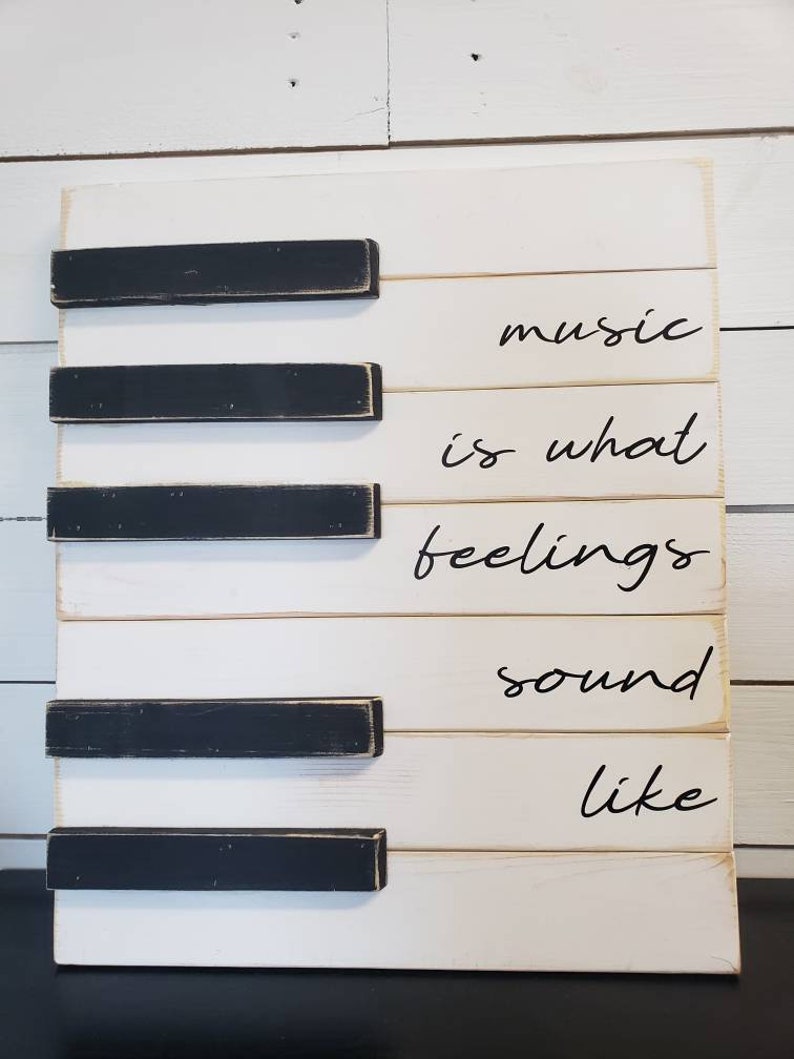 music
is what
feelings
sound
like